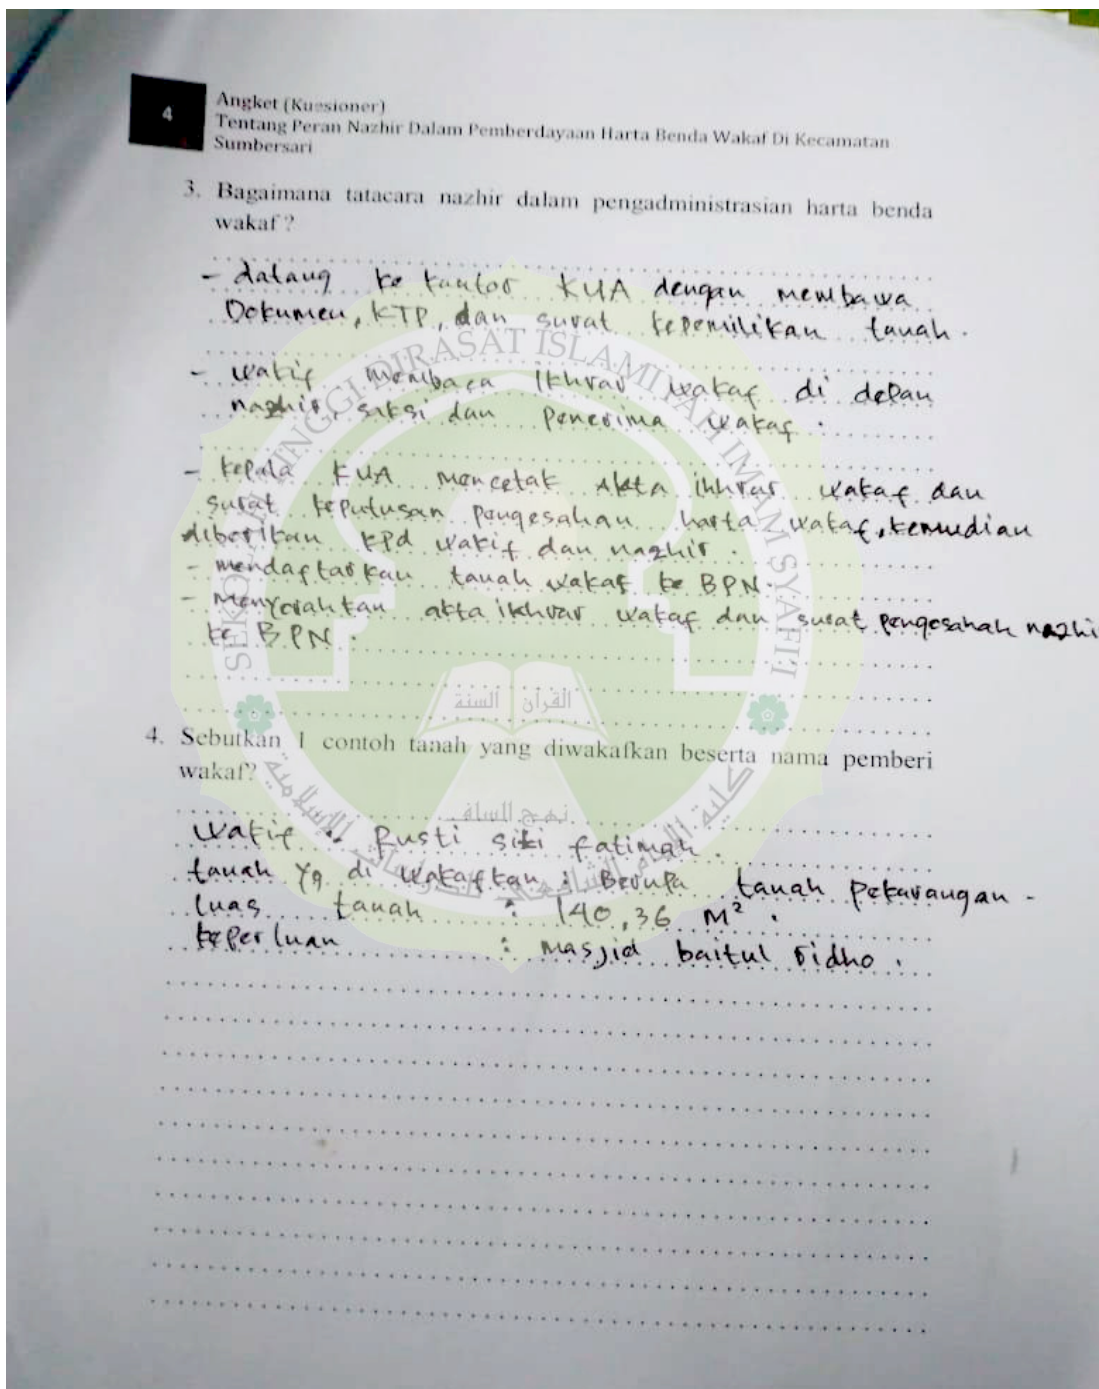 4
Angket (Kuesioner)
Tentang Peran Nazhir Dalam Pemberdayaan Harta Benda Wakaf Di Kecamatan
Sumbersari
3. Bagaimana tatacara nazhir dalam pengadministrasian harta benda
wakaf ?
- datang ke kantor KUA dengan membawa
Dokumen, KTP, dan surat kepemilikan tanah.
- wakif membaca ikhrar wakaf di depan
nazhir, saksi dan penerima wakaf.
- kepala KUA mencetak akta ikhrar wakaf dan
surat keputusan pengesahan harta wakaf, kemudian
diberikan kpd wakif dan nazhir.
- mendaftarkan tanah wakaf ke BPN.
- Menyerahkan akta ikhrar wakaf dan surat pengesahan nazhi
ke BPN.
4. Sebutkan 1 contoh tanah yang diwakafkan beserta nama pemberi
wakaf?
wakif : Rusti siti fatimah.
tanah yg di wakafkan : Berupa tanah pekarangan -
luas tanah : 140,36 M².
keperluan : masjid baitul ridho.
DIRASAT ISLAMIYAH IMAM SYAFI'I
القرآن السنة
نهج السلف